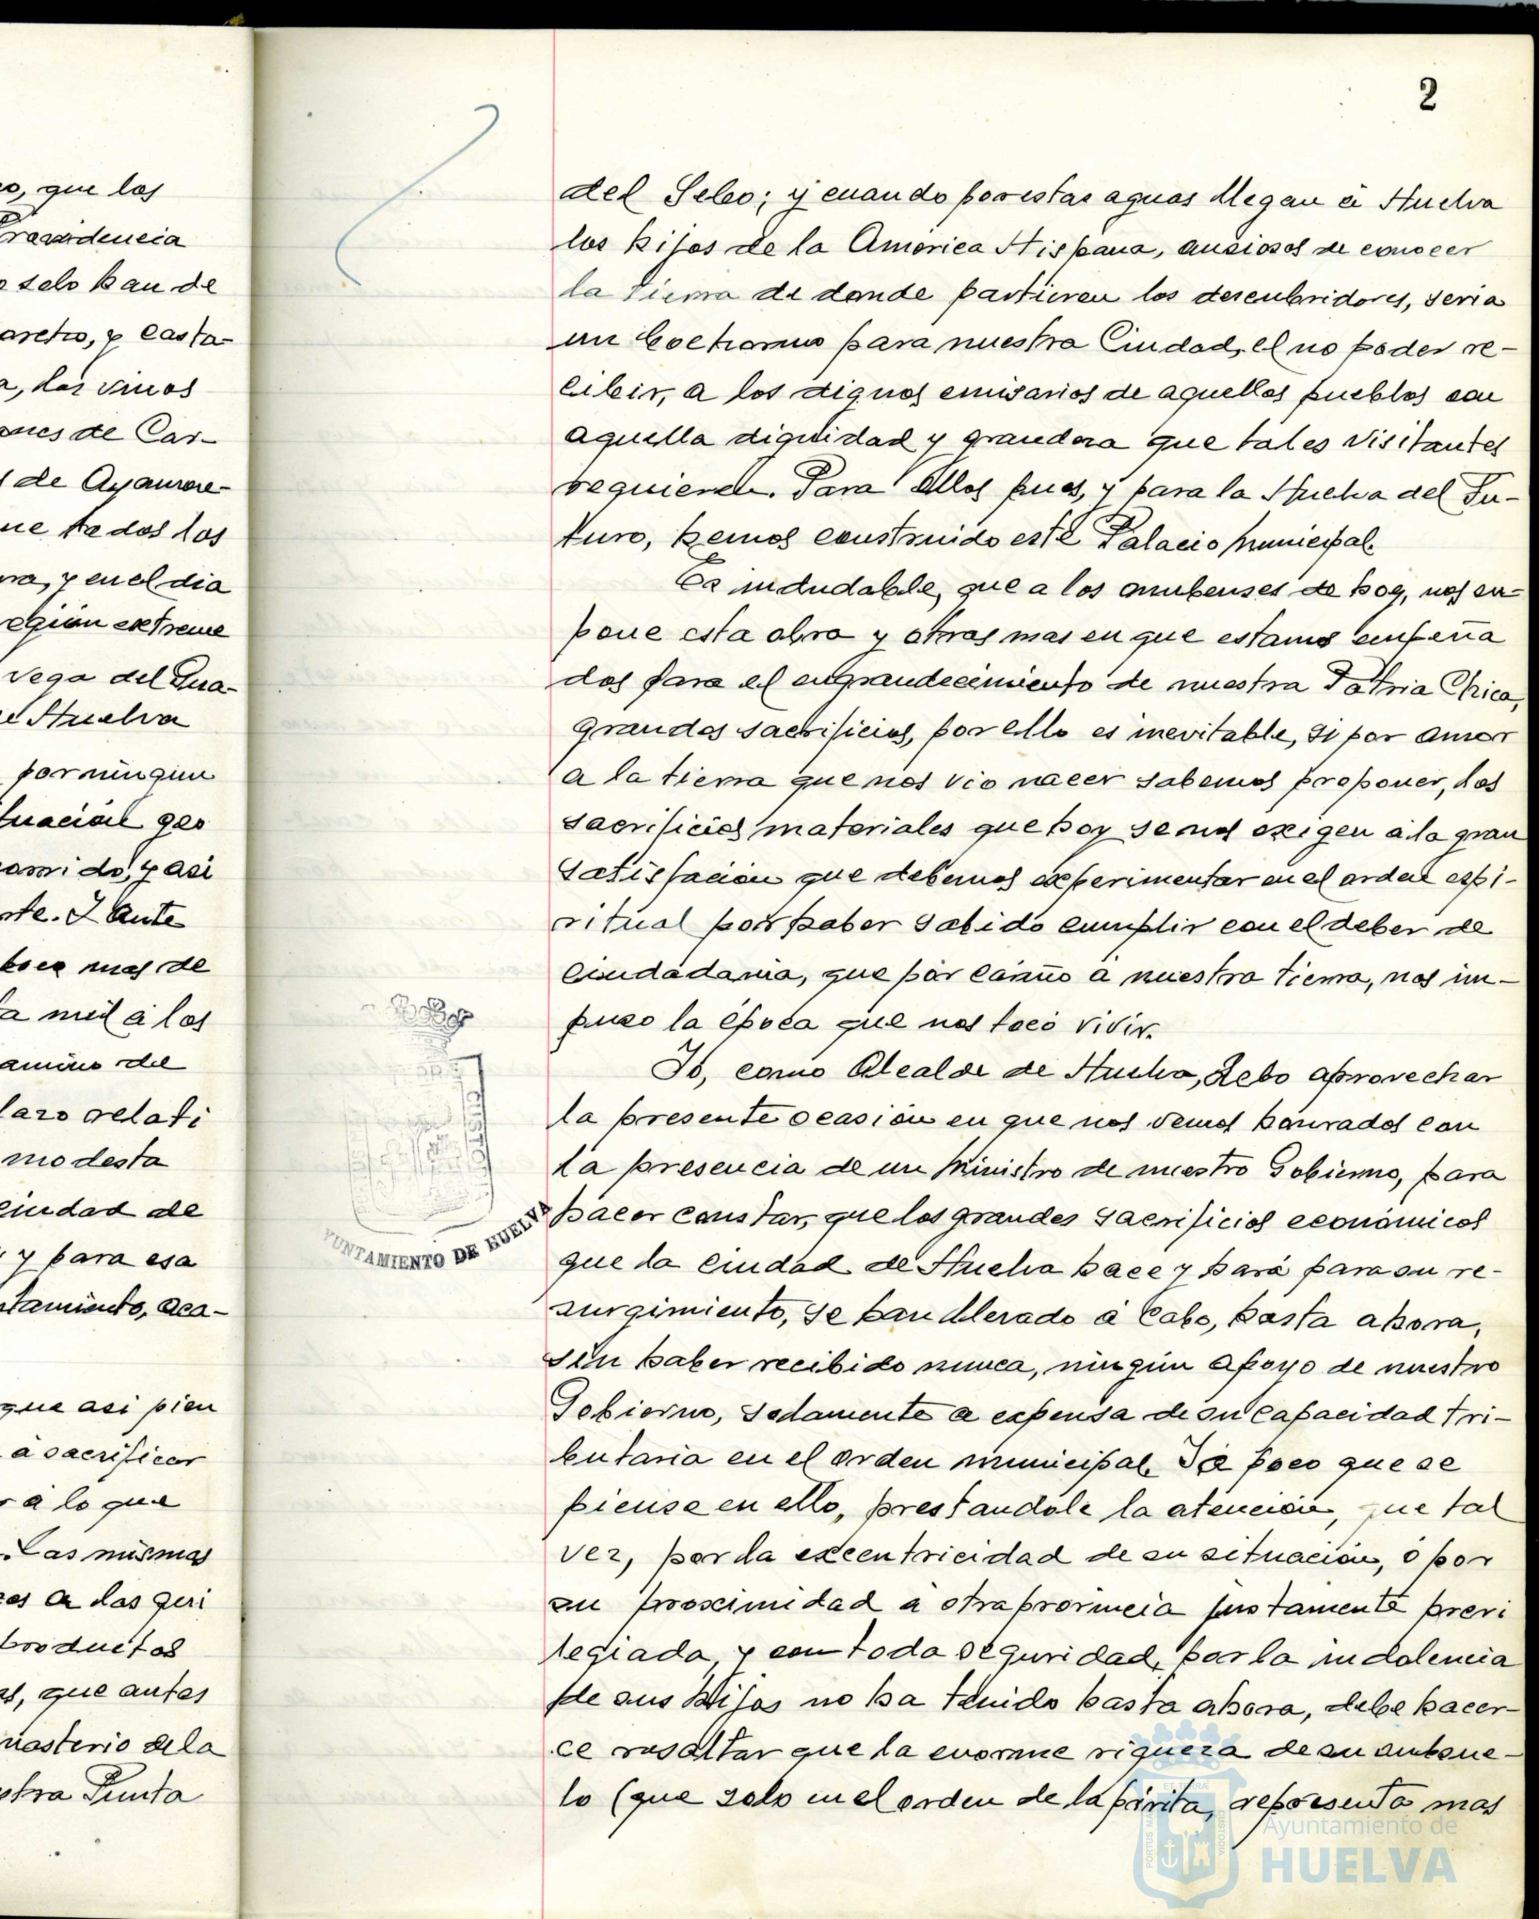 o, que los
Providencia
o solo han de
aretro, y casta-
a, los vinos
ones de Car-
s de Ayamon-
ue todos los
ra, y en el dia
región extreme
vega del Gua-
e Huelva
por ningun
tuación geo
corrido, y asi
rte. Y ante
hoce mas de
ta mil á los
amino del
lazo relati
modesta
ciudad de
y para esa
ntamiento, aca-
que asi pien
á sacrificar
r a lo que
. Las mismas
es a las qui
productos
as, que antes
nasterio de la
stra Punta
2
del Sebo; y cuando por estas aguas llegan á Huelva
los hijos de la América Hispana, ansiosos de conocer
la tierra de donde partieron los descubridores, seria
un bochorno para nuestra Ciudad, el no poder re-
cibir, a los dignos emisarios de aquellos pueblos con
aquella dignidad y grandeza que tales visitantes
requieren. Para ellos pues, y para la Huelva del Fu-
turo, hemos construido este Palacio Municipal.
Es indudable, que a los onubenses de hoy, nos su-
pone esta obra y otras mas en que estamos empeña
dos para el engrandecimiento de nuestra Patria Chica,
grandes sacrificios, por ello es inevitable, si por amor
a la tierra que nos vio nacer sabemos proponer, los
sacrificios materiales que hoy se nos exigen a la gran
satisfación que debemos experimentar en el orden espi-
ritual por haber sabido cumplir con el deber de
ciudadania, que por cariño a nuestra tierra, nos im-
puso la época que nos tocó vivir.
Yo, como Alcalde de Huelva, debo aprovechar
la presente ocasión en que nos vemos honrados con
la presencia de un Ministro de nuestro Gobierno, para
hacer constar, que los grandes sacrificios económicos
que la ciudad de Huelva hace y hará para su re-
surgimiento, se han llevado á cabo, hasta ahora,
sin haber recibido nunca, ningún apoyo de nuestro
Gobierno, solamente a expensa de su capacidad tri-
butaria en el orden municipal. Y a poco que se
piense en ello, prestandole la atención, que tal
vez, por la excentricidad de su situación, ó por
su proximidad a otra provincia justamente previ
legiada, y con toda seguridad, por la indolencia
de sus hijos no ha tenido hasta ahora, debe hacer-
ce resaltar que la enorme riqueza de su subsue-
lo (que solo en el orden de la pirita, representa mas
AYUNTAMIENTO DE HUELVA
Ayuntamiento de
HUELVA